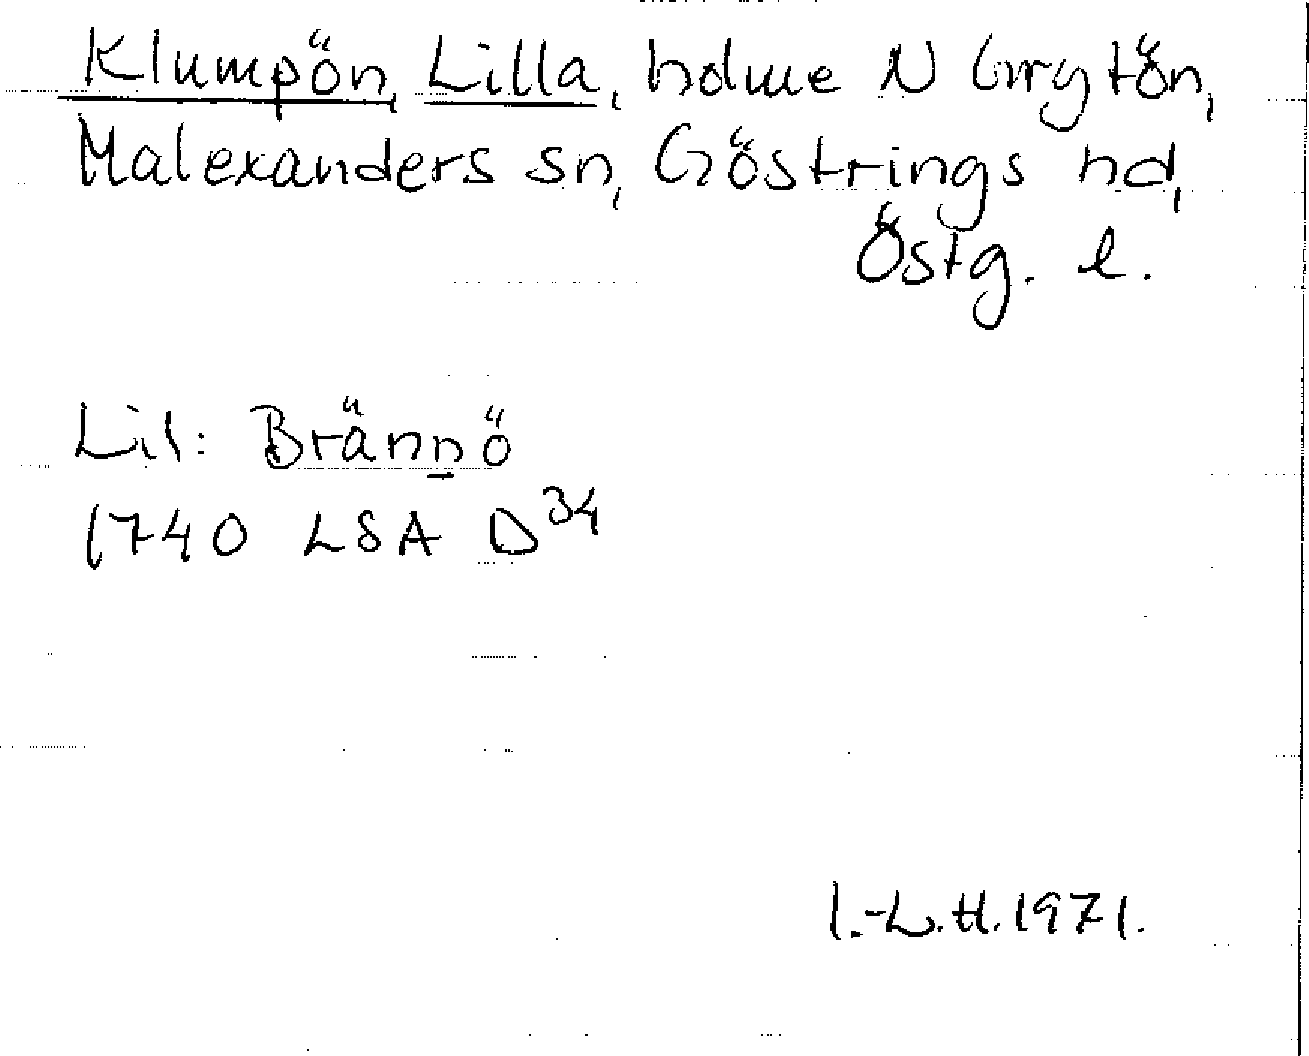 Klumpön, Lilla, holme N Grytön,
Malexanders sn, Göstrings hd,
Östg. l.
Lil: Brännö
1740 LSA D34
I.-L.H. 1971.